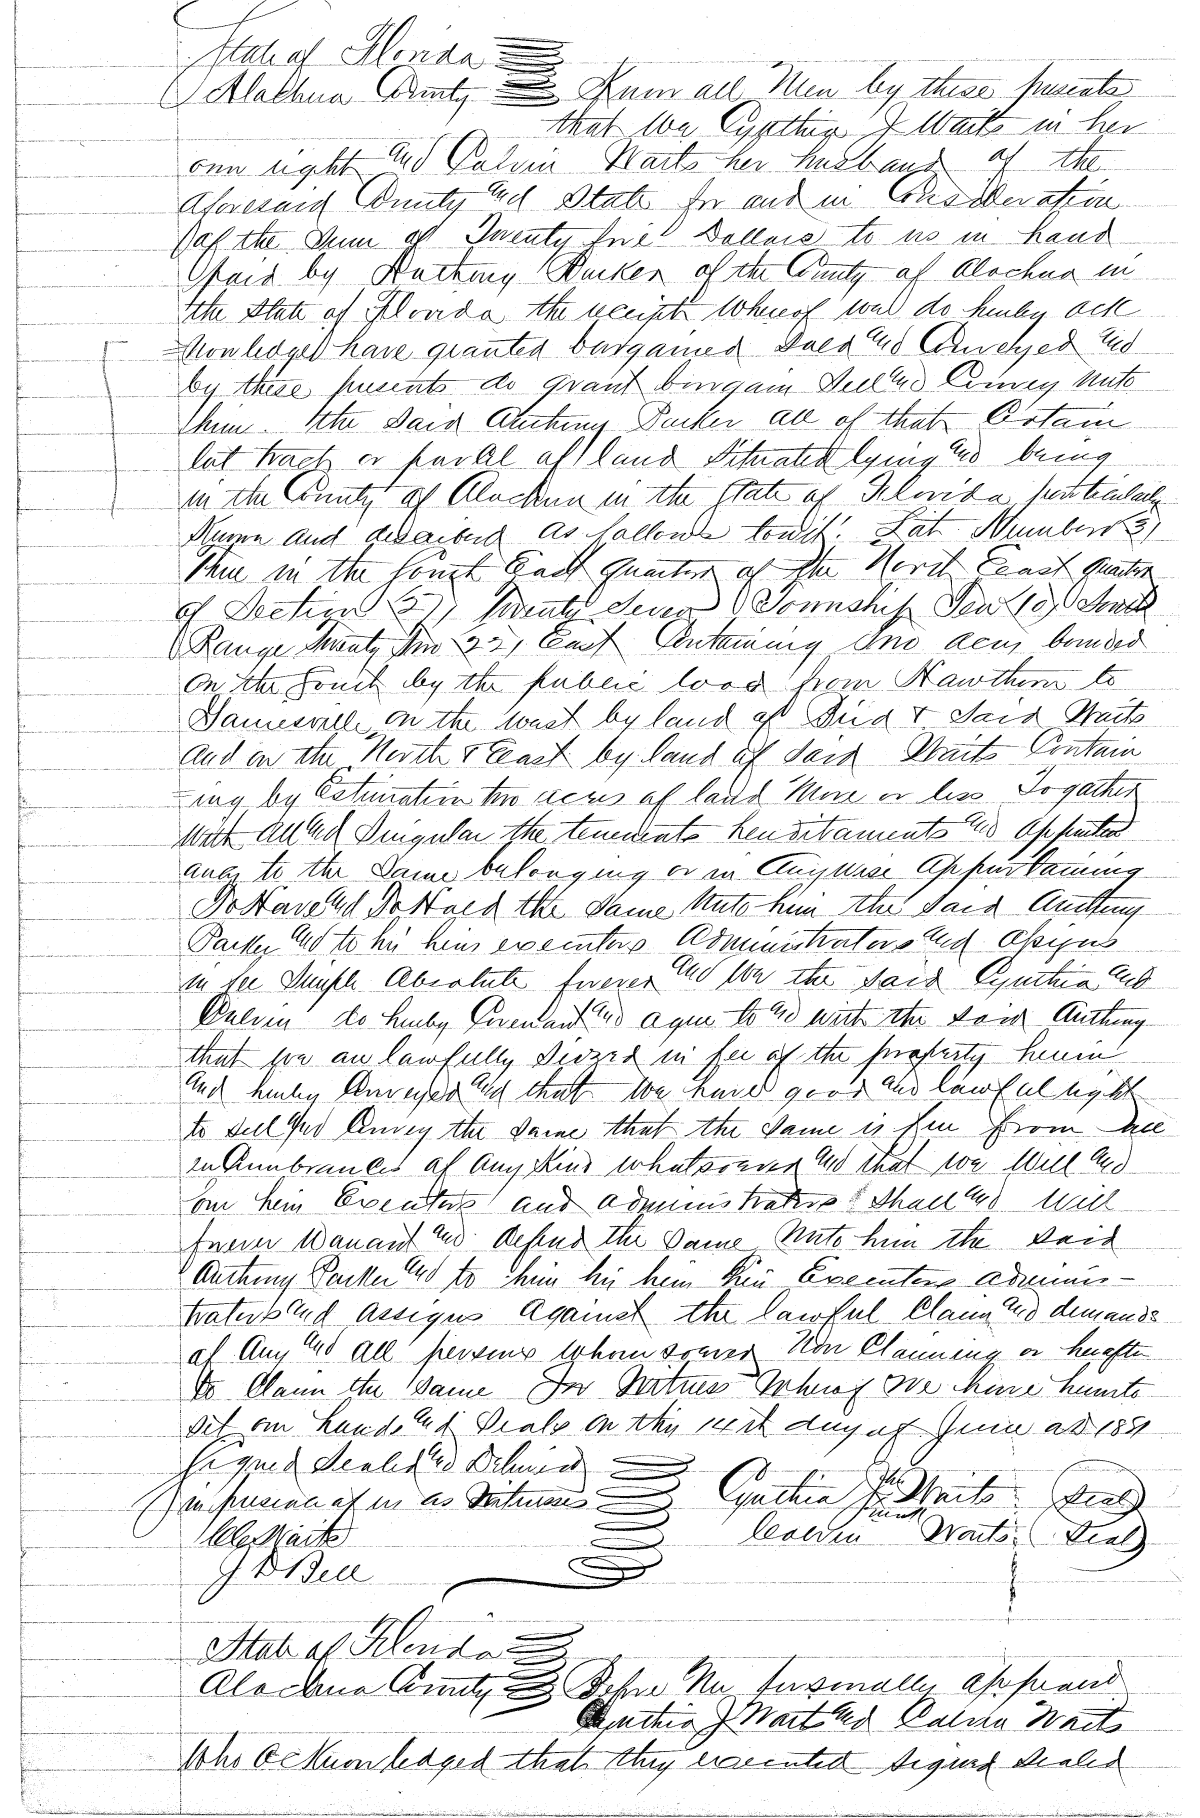 State of Florida
Alachua County Know all Men by these presents
that We Cynthia J Waits in her
own right and Calvin Waits her husband of the
aforesaid County and State for and in Consideration
of the Sum of Twenty five Dollars to us in hand
paid by Anthony Parker of the County of Alachua in
the State of Florida the receipt Whereof do hereby ack
=nowledged have granted bargained Sold and Conveyed and
by these presents do grant bargain Sell and Convey Unto
him the Said Anthony Parker all of that Certain
lot tract or parcel of land Situated lying and being
in the County of Alachua in the State of Florida particularly
Known and described as follows towit: Lot Number 3)
Three in the South East Quarter of the North East Quarter
of Section 27) Twenty Seven Township Ten (10) South
Range Twenty Two 22) East Containing two acres bounded
on the South by the public road from Hawthorn to
Gainesville on the west by land of & Said Waits
and on the North & East by land of Said Waits Contain
=ing by Estimation two acres of land More or less Togather
with all and Singular the tenements hereditaments and appurten
ances to the Same belonging or in Anywise Appurtaining
To Have and To Hold the Same Unto him the Said Anthony
Parker and to his heirs executors Administrators and assigns
in fee Simple Absolute forever and We the Said Cynthia and
Calvin do hereby Covenant and agree to and with the said Anthony
that we are lawfully Siezed in fee of the property herein
and hereby Conveyed and that We have good and lawful right
to Sell and Convey the Same that the Same is free from all
encumbrances of Any Kind whatsoever and that we Will and
our heirs Executors and administrators Shall and Will
forever Warrant and defend the Same Unto him the said
Anthony Parker and to him his heirs Executors adminis-
trators and assigns Against the lawful Claims and demands
of Any and all persons whomsoever Now Claiming or hereafter
to Claim the Same In Witness Whereof We have hereunto
set our hands and Seals on this 14th day of June AD 18
Signed Sealed and Delivered
in presence of us as Witnesses Cynthia J. Waits (Seal)
Waits Calvin Waits (Seal)
J D Bell
State of Florida
Alachua County Before Me personally appeared
Cynthia J Waits and Calvin Waits
Who acknowledged that they executed signed sealed